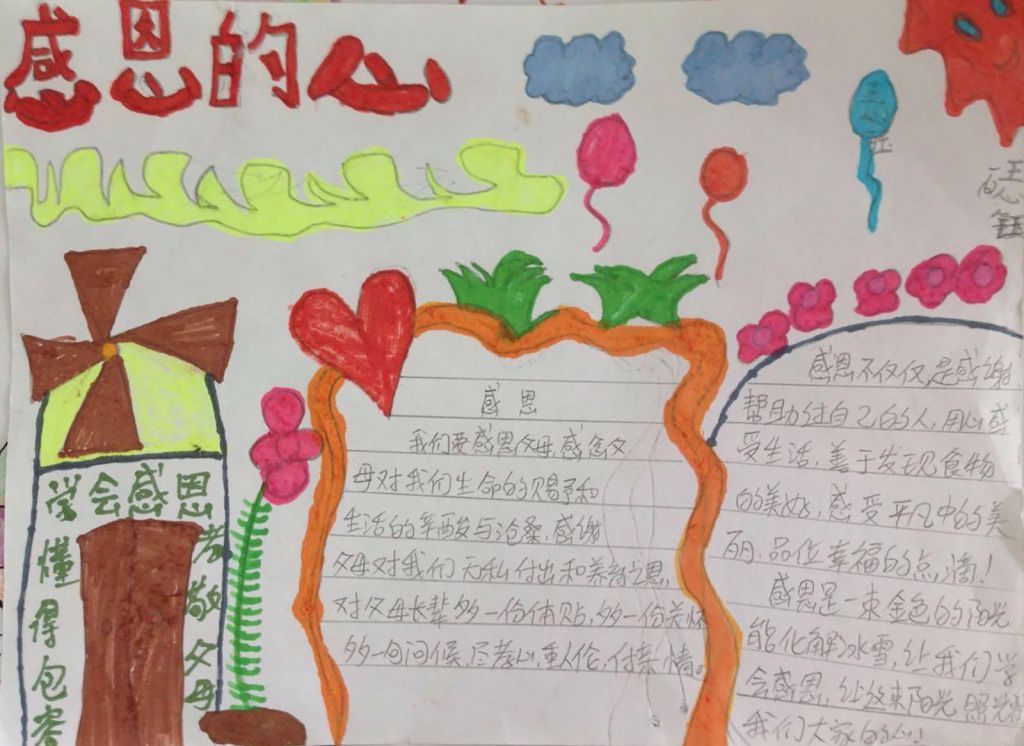 感恩的心
王
学会感恩
懂得包容
孝敬父母
感恩
我们要感恩父母,感念父
母对我们生命的赐予和
生活的辛酸与沧桑,感谢
父母对我们无私付出和养育之恩,
对父母长辈多一份体贴,多一份关怀
多一句问候,尽孝心,重人伦,付亲情。
感恩不仅仅是感谢
帮助过自己的人,用心感
受生活,善于发现食物
的美好,感受平凡中的美
丽,品位幸福的点滴!
感恩是一束金色的阳光
能化解冰雪,让我们学
会感恩,让这束阳光照光
我们大家的心!